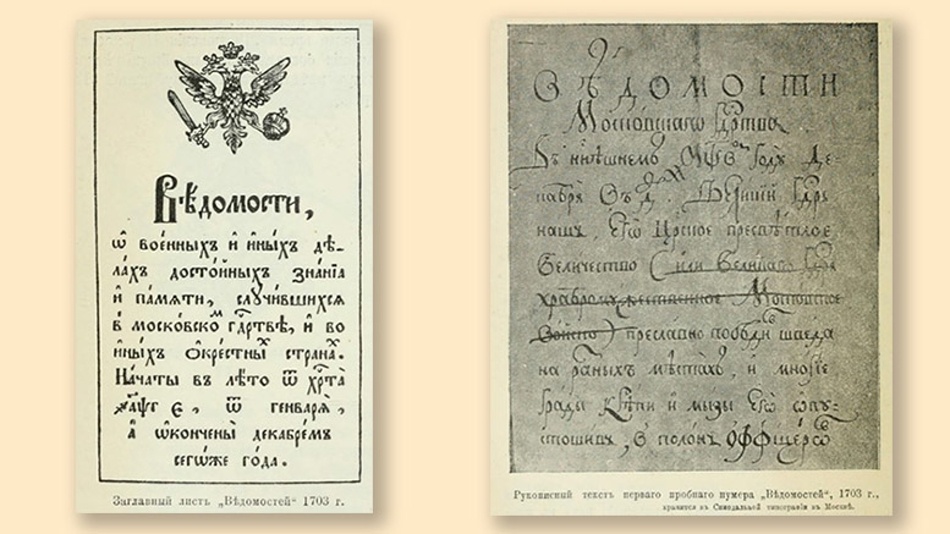 Вѣдомости,
ѡ҆ вое́нныхъ и҆ и҆́ныхъ дѣ-
ла́хъ досто́йныхъ зна́нїѧ
и҆ па́мѧти, слꙋчи́вшихсѧ
в҆ моско́вскоⷨ гдⷭ҇ртвѣ, и҆ во
и҆́ныхъ ѻ҆кре́стныⷯ странаⷯ.
На́чаты въ лѣ́то ѿ хрⷭ҇та̀
҂аѱг е, ѿ генварѧ̀,
а҆ ѡ҆кончены̀ декабре́мъ
сегѡ́же го́да.
Заглавный листъ „Вѣдомостей“ 1703 г.
ВѢДОМОСТИ
Московскаго
Въ нн҃ѣшнемъ годꙋ де-
кабрѧ
нашъ, Егѡ Црⷭ҇кое пресвѣтлое
Величество (
Московское
войско) преславно шведа
на разныхъ мѣстахъ, и многїе
грады и мызы Егѡ ѡпꙋ-
стошивъ, в полонъ
Рукописный текстъ перваго пробнаго нумера „Вѣдомостей“, 1703 г.,
хранится въ Синодальной типографіи въ Москвѣ.